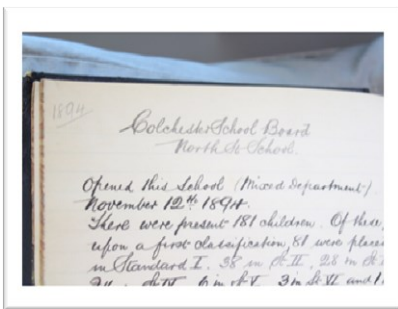 1894
Colchester School Board
North St School.
Opened this School (Mixed Department)
November 12th 1894.
There were present 181 children. Of these,
upon a first classification, 81 were placed
in Standard I. 38 in St. II, 28 in St.
in St. IV 6 in St V 3 in St VI and 1